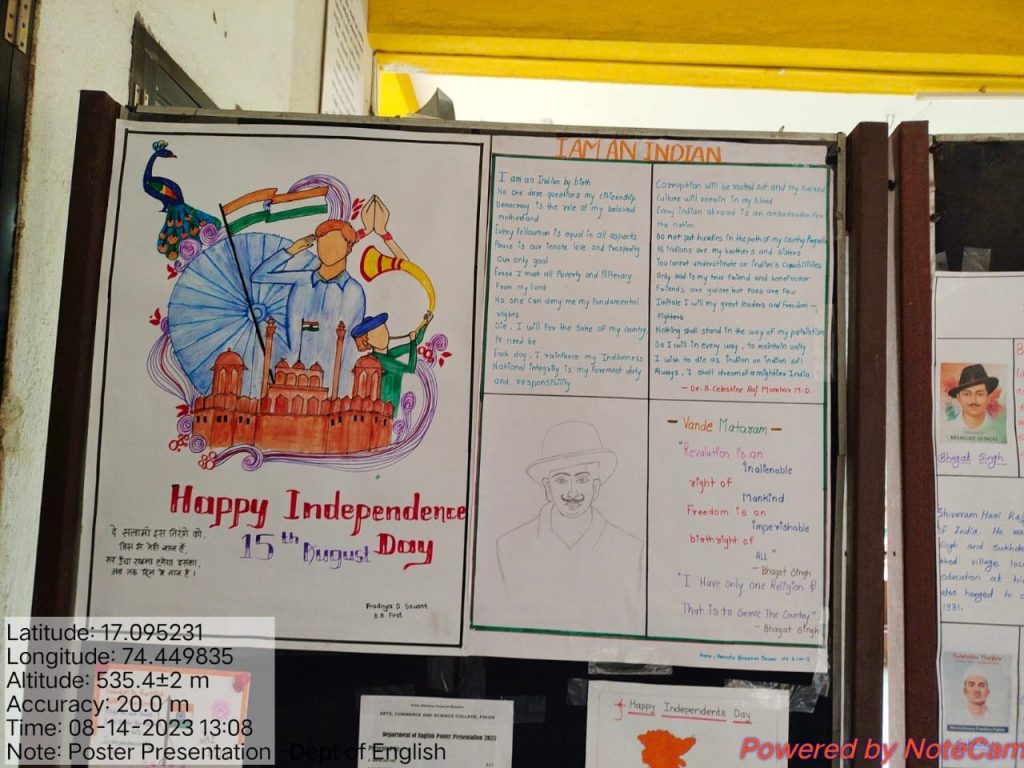 Happy Independence
15th August Day
दे सलामी इस तिरंगे को,
जिस से तेरी शान है,
सर ऊँचा रखना हमेशा इसका,
जब तक दिल में जान है।
Pradnya D. Sawant
B.A. First
I AM AN INDIAN
I am an Indian by birth
No one dare questions my citizenship
Democracy is the role of my beloved
motherland
Every fellowman is equal in all aspects
Peace is our innate love and Prosperity
Our only goal
Erase I must all Poverty and illiteracy
From my land
No one can deny me my fundamental
rights
Die, I will for the Sake of my country,
if need be
Each day, I reinforce my Indianness
National integrity is my foremost duty
and responsibility
Corruption will be rooted out and my Sacred
Culture will remain in my blood
Every indian abroad is an ambassador for
the nation
Do not put hurdles in the path of my country Progress
All indians are my brothers and sisters
You cannot underestimate an indian's Capabilities
Only God is my true friend and benefactor
Friends are galore but foes are few
Imitate I will my great leaders and Freedom -
Fighters
Nothing shall stand in the way of my patriotism
Do I will in every way, to maintain unity
I wish to die as indian on indian soil
Always, I shall dream of a mightier India
- Dr. A. Celestine Raj Manohar M.D.
- Vande Mataram -
"Revolution is an
inalienable
right of
Mankind
Freedom is an
imperishable
birthright of
ALL"
- Bhagat Singh
"I Have only one Religion &
That is to Serve The Country"
- Bhagat Singh
Name:
BHAGAT SINGH
Bhagat Singh
Shivaram Hari Raj
of India. He wa
Singh and Sukhde
khed village loc
education at hi
also hanged to
1931.
ARTS, COMMERCE AND SCIENCE COLLEGE, PALUS
Department of English Poster Presentation 2023
Happy Independents Day
Latitude: 17.095231
Longitude: 74.449835
Altitude: 535.4±2 m
Accuracy: 20.0 m
Time: 08-14-2023 13:08
Note: Poster Presentation - Dept of English
Powered by NoteCam